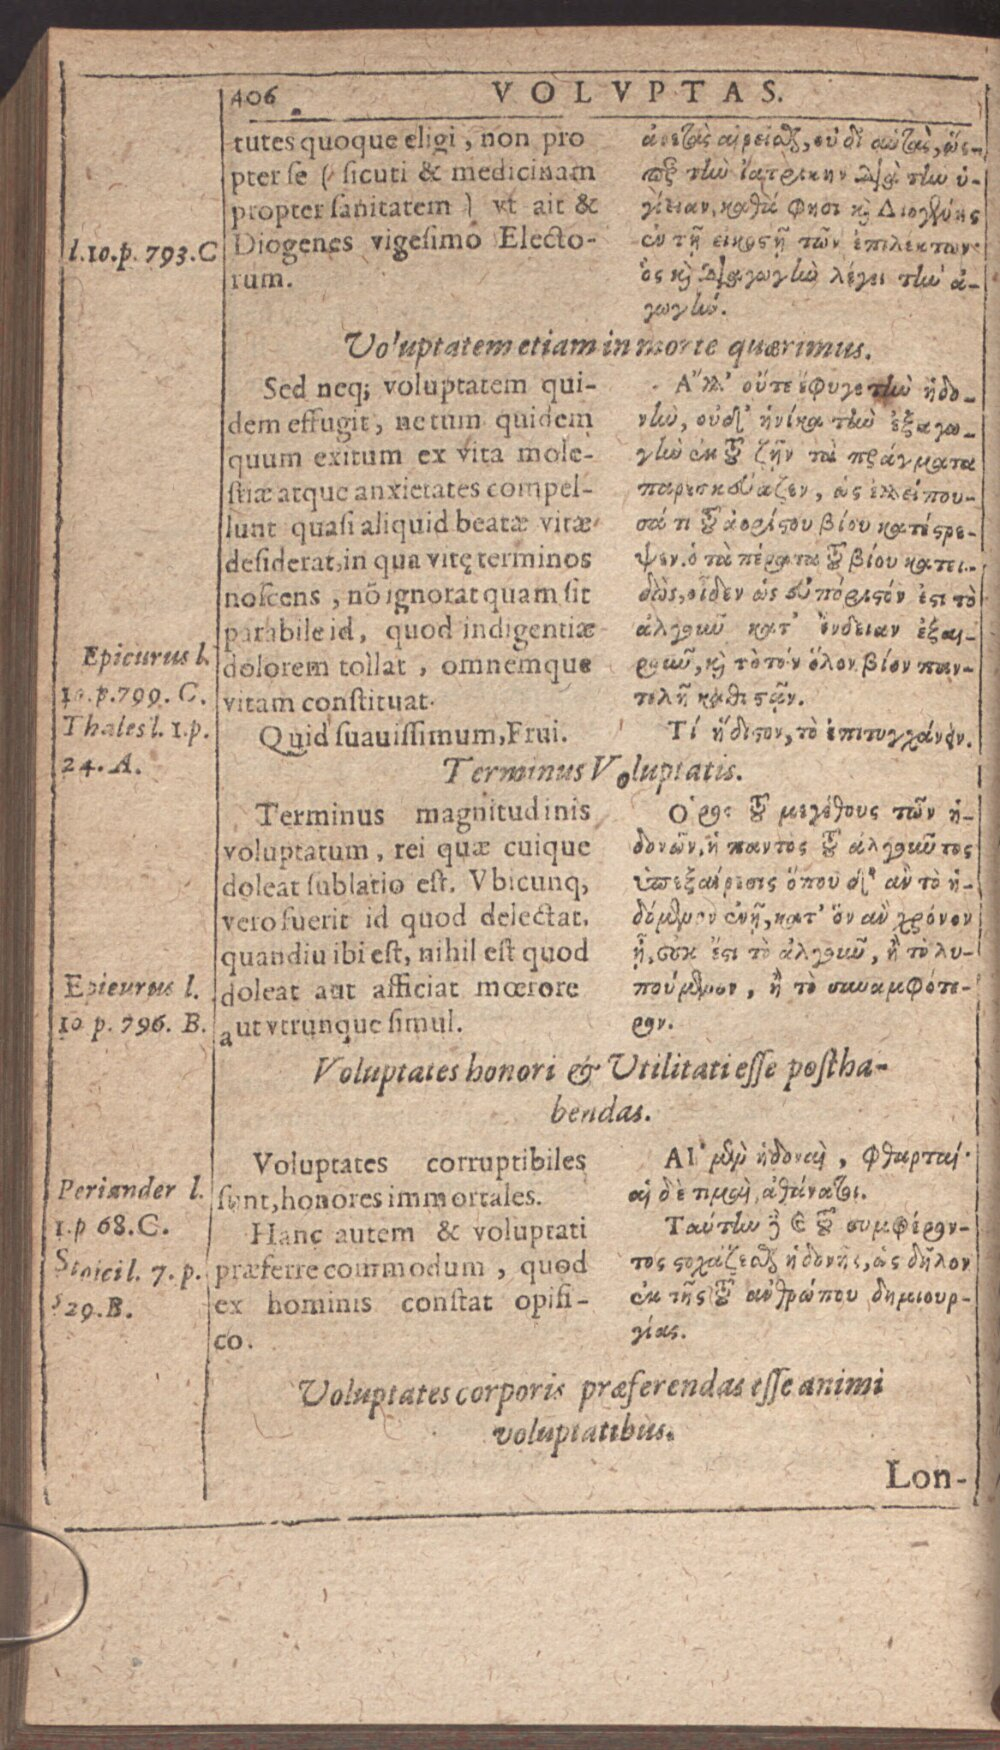 406
VOLVPTAS.
tutes quoque eligi, non pro
pter se ( sicuti & medicinam
propter sanitatem ) vt ait &
Diogenes vigesimo Electo-
rum.
l.10.p. 793.C
ἀρετὰς αἱρεῖσθαι, οὐ δι' αὑτὰς, ὥσ-
περ τὴν ἰατρικὴν διὰ τὴν ὑ-
γίειαν, καθά φησι καὶ Διογένης
ἐν τῇ εἰκοστῇ τῶν ἐπιλέκτων
ὃς καὶ διαγωγὴν λέγει τὴν ἀ-
γωγήν.
Voluptatem etiam in morte quærimus.
Sed neq; voluptatem qui-
dem effugit, ne tum quidem
quum exitum ex vita mole-
stiæ atque anxietates compel-
lunt quasi aliquid beatæ vitæ
desiderat, in qua vitę terminos
noscens, nõ ignorat quam sit
parabile id, quod indigentiæ
dolorem tollat, omnemque
vitam constituat.
Epicurus l.
10.p.799. C.
Ἀλλ' οὔτε ἔφυγε τὴν ἡδο-
νὴν, οὐδ' ἡνίκα τὴν ἐξαγω-
γὴν ἐκ τοῦ ζῆν τὰ πράγματα
παρεσκεύαζεν, ὡς ἐλλείπου-
σά τι τοῦ ἀρίστου βίου κατέστρε-
ψεν. ὁ τὰ πέρατα τοῦ βίου κατει-
δὼς, οἶδεν ὡς εὐπόριστόν ἐστι τὸ
ἀλγοῦν κατ' ἔνδειαν ἐξαι-
ροῦν, καὶ τὸ τόν ὅλον βίον παν-
τελῆ καθιστῶν.
Quid suauissimum, Frui.
Thales l. 1.p.
24. A.
Τί ἥδιστον, τὸ ἐπιτυγχάνειν.
Terminus Voluptatis.
Terminus magnitudinis
voluptatum, rei quæ cuique
doleat sublatio est. Vbicunq,
vero fuerit id quod delectat.
quandiu ibi est, nihil est quod
doleat aut afficiat mœrore
aut vtrunque simul.
Epicurus l.
10 p. 796. B.
Ὅρος τοῦ μεγέθους τῶν ἡ-
δονῶν, ἡ παντὸς τοῦ ἀλγοῦντος
ὑπεξαίρεσις ὅπου δ' ἂν τὸ ἡ-
δόμενον ἐνῇ, κατ' ὃν ἂν χρόνον
ᾖ, οὐκ ἔστι τὸ ἀλγοῦν, ἢ τὸ λυ-
πούμενον, ἢ τὸ συναμφότε-
ρον.
Voluptates honori & Utilitati esse postha-
bendas.
Voluptates corruptibiles
sunt, honores immortales.
Periander l.
1.p 68.C.
Αἱ μὲν ἡδοναὶ, φθαρταί·
αἱ δὲ τιμαὶ, ἀθάνατοι.
Hanc autem & voluptati
præferre commodum, quod
ex hominis constat opifi-
co.
Stoici l. 7. p.
529.B.
Ταύτην δὲ καὶ τοῦ συμφέρον-
τος στοχάζεσθαι ἡδονῆς, ὡς δῆλον
ἐκ τῆς τοῦ ἀνθρώπου δημιουρ-
γίας.
Voluptates corporis præferendas esse animi
voluptatibus.
Lon-